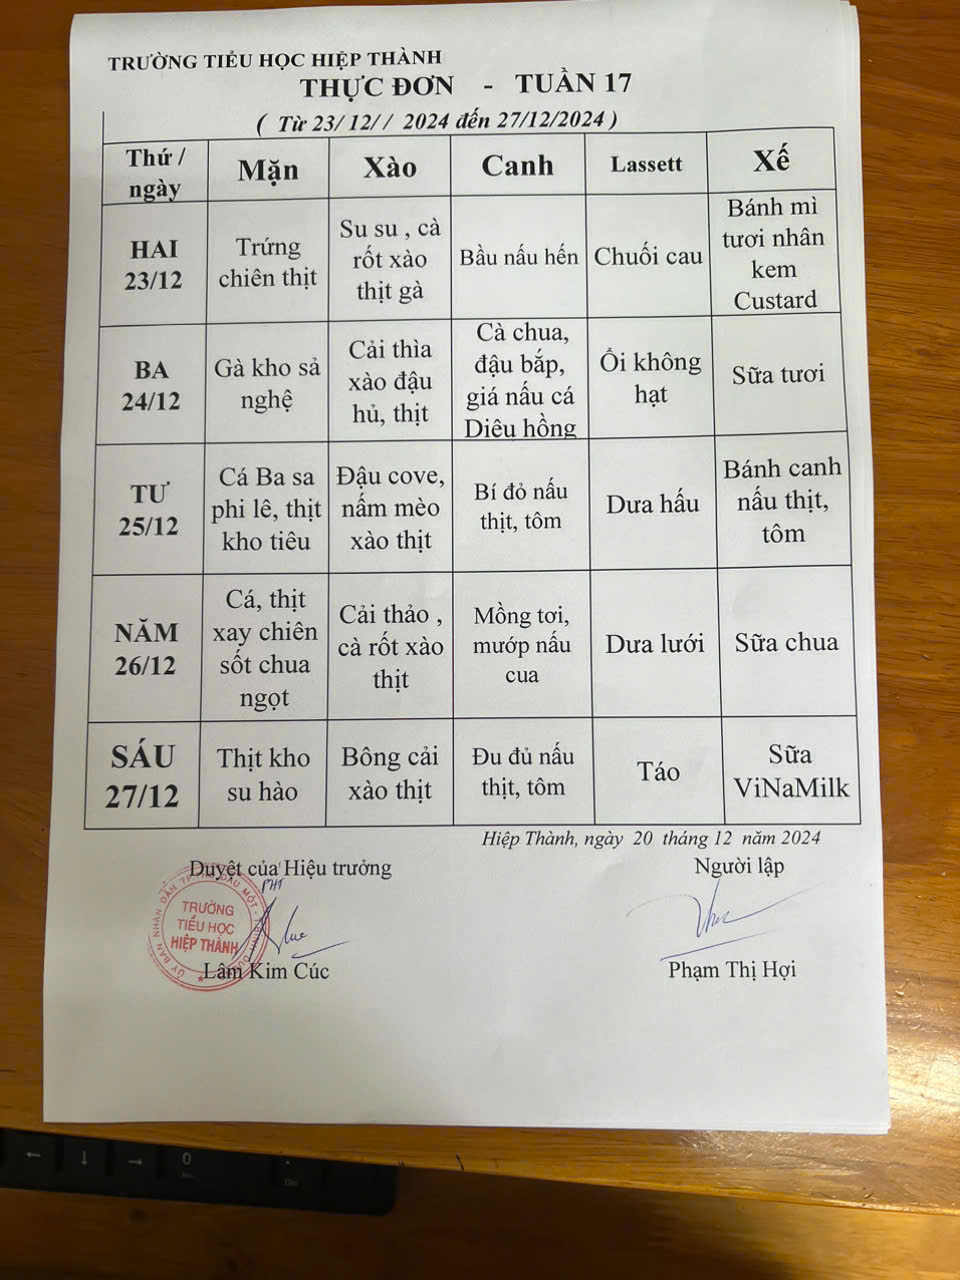 TRƯỜNG TIỂU HỌC HIỆP THÀNH
THỰC ĐƠN - TUẦN 17
( Từ 23/ 12/ / 2024 đến 27/12/2024 )
Thứ /
ngày
Mặn
Xào
Canh
Lassett
Xế
HAI
23/12
Trứng
chiên thịt
Su su , cà
rốt xào
thịt gà
Bầu nấu hến
Chuối cau
Bánh mì
tươi nhân
kem
Custard
BA
24/12
Gà kho sả
nghệ
Cải thìa
xào đậu
hủ, thịt
Cà chua,
đậu bắp,
giá nấu cá
Diêu hồng
Ổi không
hạt
Sữa tươi
TƯ
25/12
Cá Ba sa
phi lê, thịt
kho tiêu
Đậu cove,
nấm mèo
xào thịt
Bí đỏ nấu
thịt, tôm
Dưa hấu
Bánh canh
nấu thịt,
tôm
NĂM
26/12
Cá, thịt
xay chiên
sốt chua
ngọt
Cải thảo ,
cà rốt xào
thịt
Mồng tơi,
mướp nấu
cua
Dưa lưới
Sữa chua
SÁU
27/12
Thịt kho
su hào
Bông cải
xào thịt
Đu đủ nấu
thịt, tôm
Táo
Sữa
ViNaMilk
Hiệp Thành, ngày 20 tháng 12 năm 2024
Duyệt của Hiệu trưởng
Người lập
PHT
TRƯỜNG
TIỂU HỌC
HIỆP THÀNH
Lâm Kim Cúc
Phạm Thị Hợi